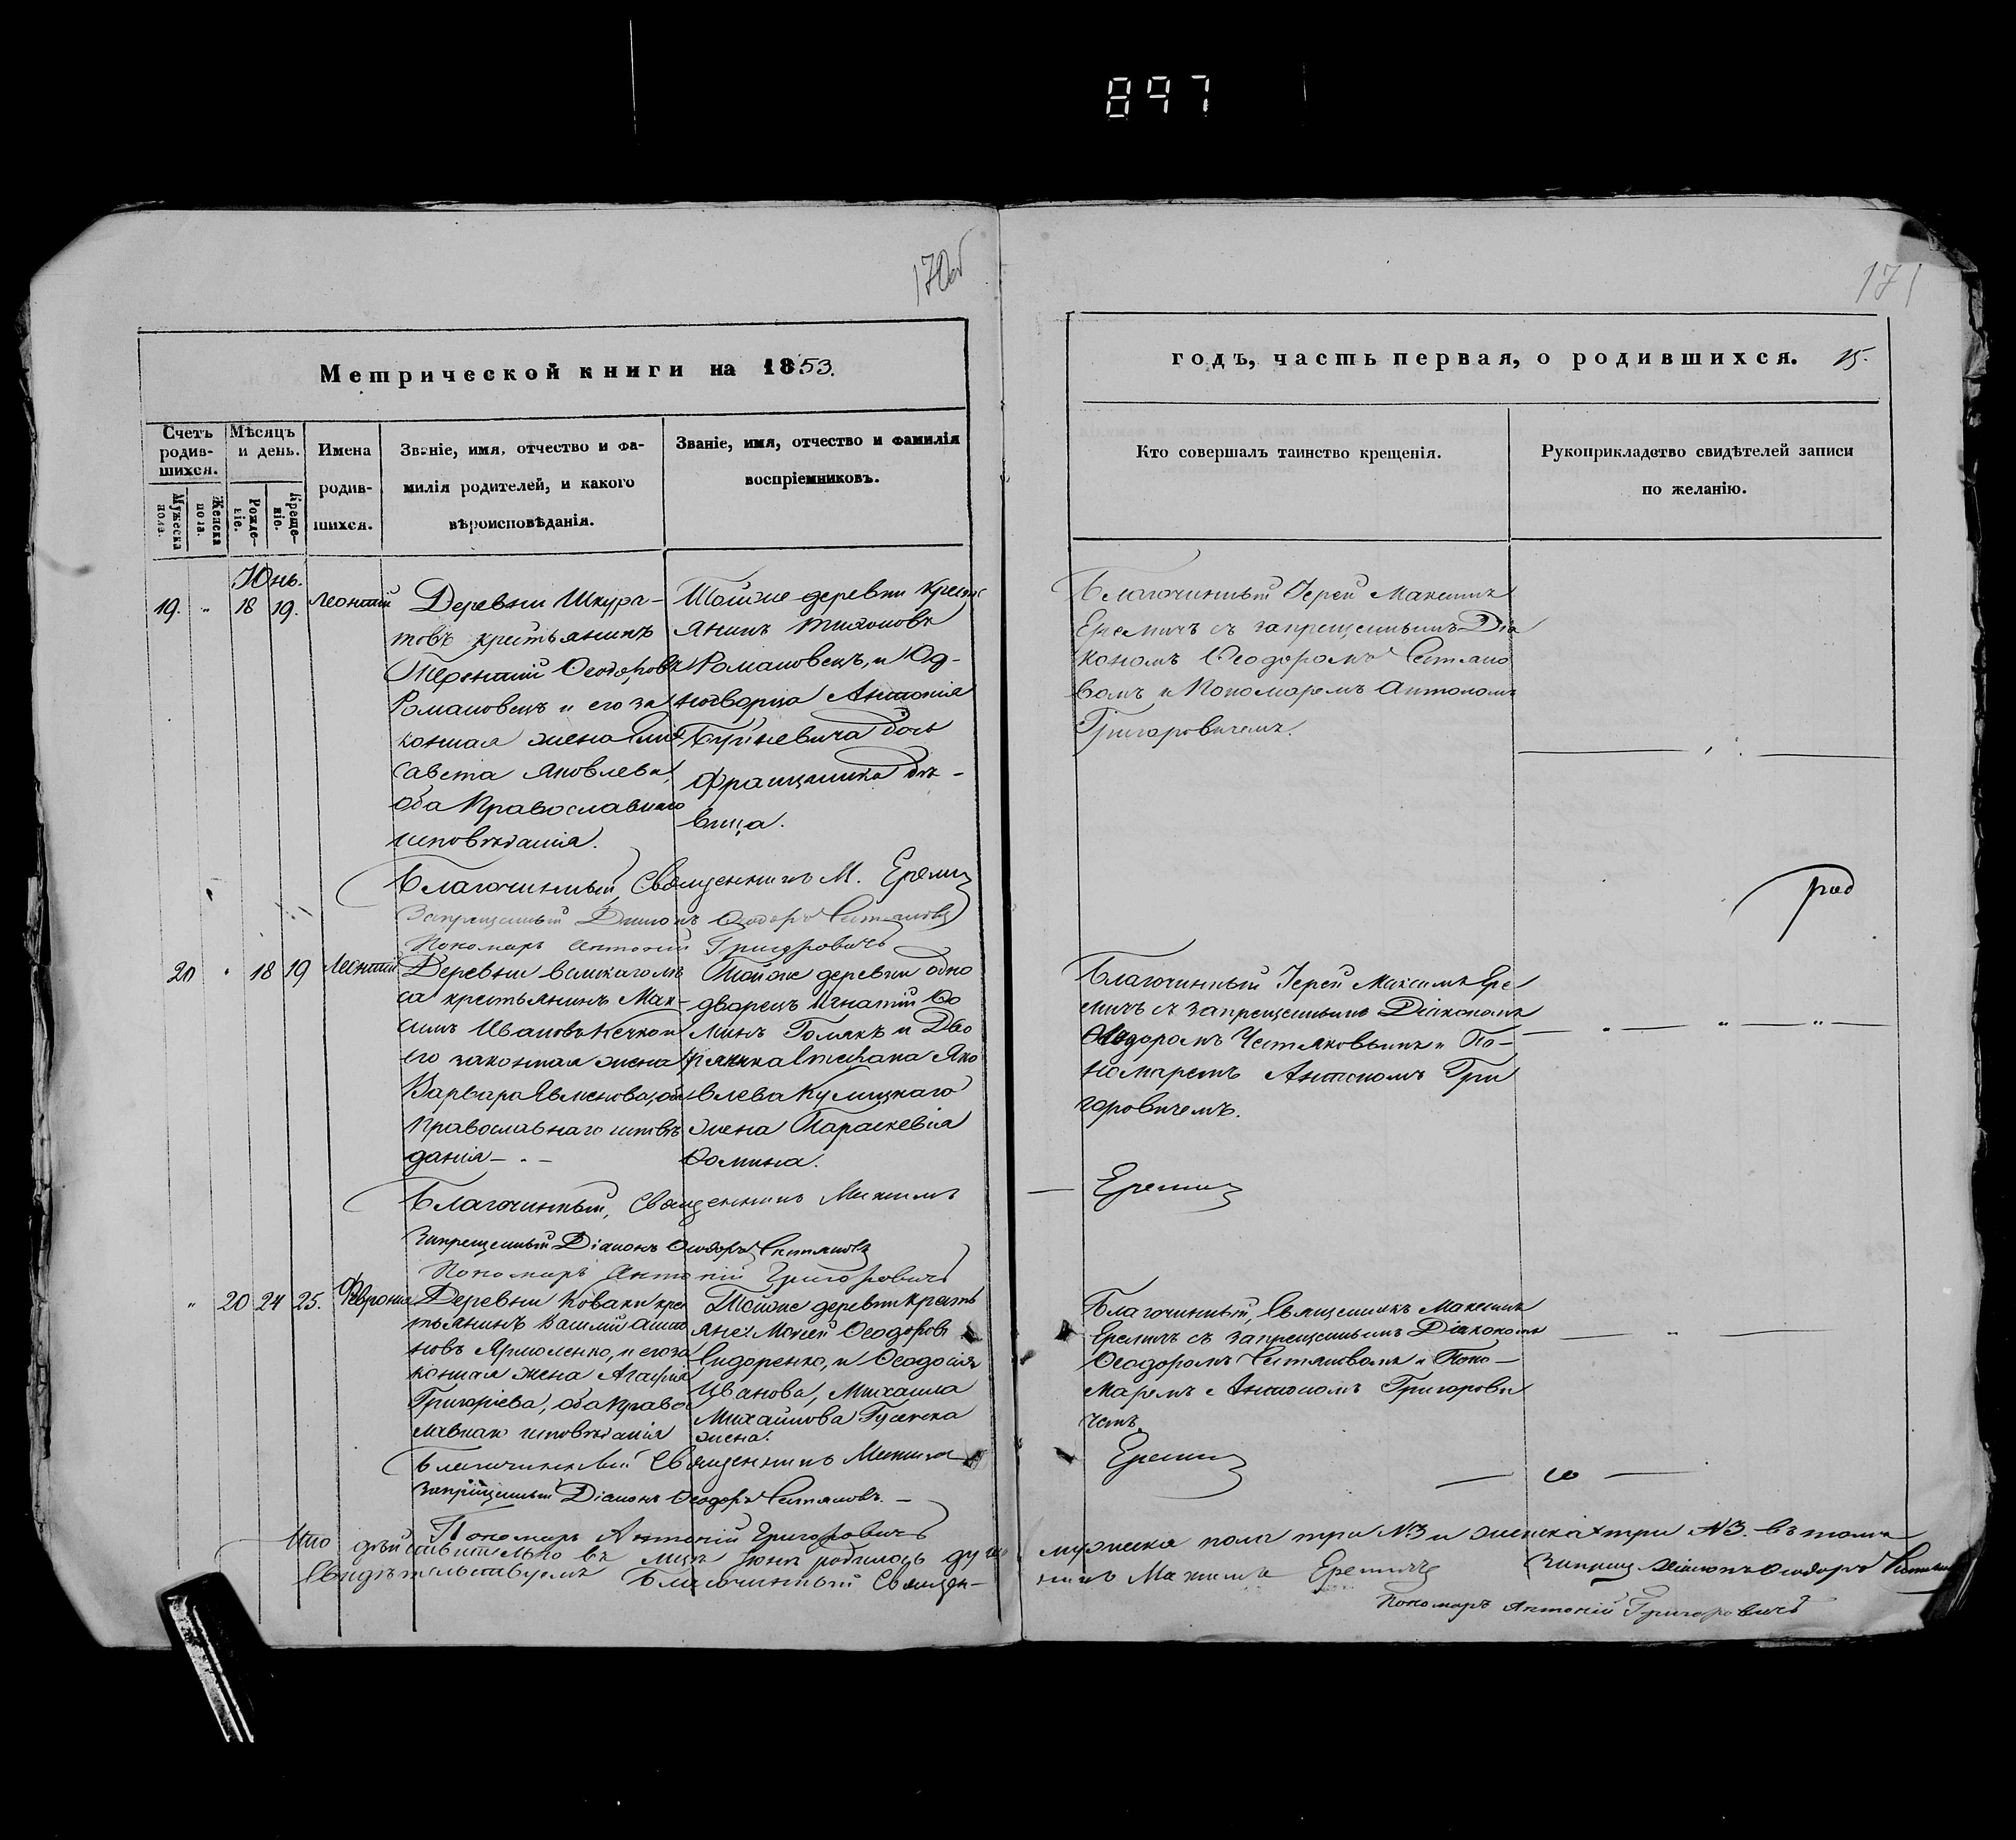 897
170об
171
Метрической книги на 1853.
годъ, часть первая, о родившихся. 15.
Счетъ родив-шихся.
Мужеска пола.
Женска пола.
Мѣсяцъ и день.
Рожде-ніе.
Креще-ніе.
Имена
родив-
шихся.
Званіе, имя, отчество и фа-
милія родителей, и какого
вѣроисповѣданія.
Званіе, имя, отчество и фамилія
воспріемниковъ.
Кто совершалъ таинство крещенія.
Рукоприкладство свидѣтелей записи
по желанію.
Юнь.
19. " 18 19. Леонтій
Деревни Шкура-
товъ крестьянинъ
Терентій Ѳеодоровъ
Романовецъ и его за
конная жена Ели
савета Яковлева,
оба Православнаго
исповѣданія.
Тойже деревни крест
янинъ Тихоновъ
Романовецъ, и Од-
нодворца Антонія
дочь
Францишка дѣ-
вица.
Благочинный Іерей Максимъ
Еремичъ съ запрещеннымъ Діа
кономъ Ѳеодоромъ
и Пономаремъ Антоніомъ
Григоровичемъ.
Благочинный, Священникъ М. Еремич
Запрещенный Діаконъ Ѳеодоръ
Пономарь Антоній Григоровичъ
20 " 18 19 Леонтій
Деревни
крестьянинъ Мак-
симъ Ивановъ
его законная жена
Варвара
Православнаго исповѣ
данія - " -
Тойже деревни одно
дворецъ Игнатій Ѳо
минъ и Дво
рянина Стефана Яко
влева Кулицкаго
жена Параскевія
Ѳомина.
Благочинный Іерей Максимъ Ере
мичъ съ запрещеннымъ Діакономъ
Ѳеодоромъ и По-
номаремъ Антоніомъ Гри
горовичемъ.
Благочинный, Священникъ Максимъ
Еремич
Запрещенный Діаконъ Ѳеодоръ
Пономарь Антоній Григоровичъ
" 20 24 25. Феврония
Деревни Коваки крес
тьянинъ Василій Анто
новъ Ярмоленко, и его за
конная жена Агафія
Григоріева, оба Правос
лавнаго исповѣданія
Тойже деревни кресть
яне: Моисей Ѳеодоровъ
Сидоренко, и Ѳеодосія
Иванова, Михаила
Михайлова Гусенка
жена.
Благочинный, Священникъ Максимъ
Еремичъ съ запрещеннымъ Діакономъ
Ѳеодоромъ и Поно-
маремъ Антоніомъ Григорови
чемъ
Благочинный Священникъ Максимъ
Еремич
Запрещенный Діаконъ Ѳеодоръ
Пономарь Антоній Григоровичъ
Что дѣйствительно въ м-цѣ Іюнѣ родилось душъ мужеска пола три №3 и женска три №3. въ томъ
Свидѣтельствуемъ Благочинный Священ-никъ Максимъ Еремичъ Запрещ Діаконъ Ѳеодоръ
Пономарь Антоній Григоровичъ